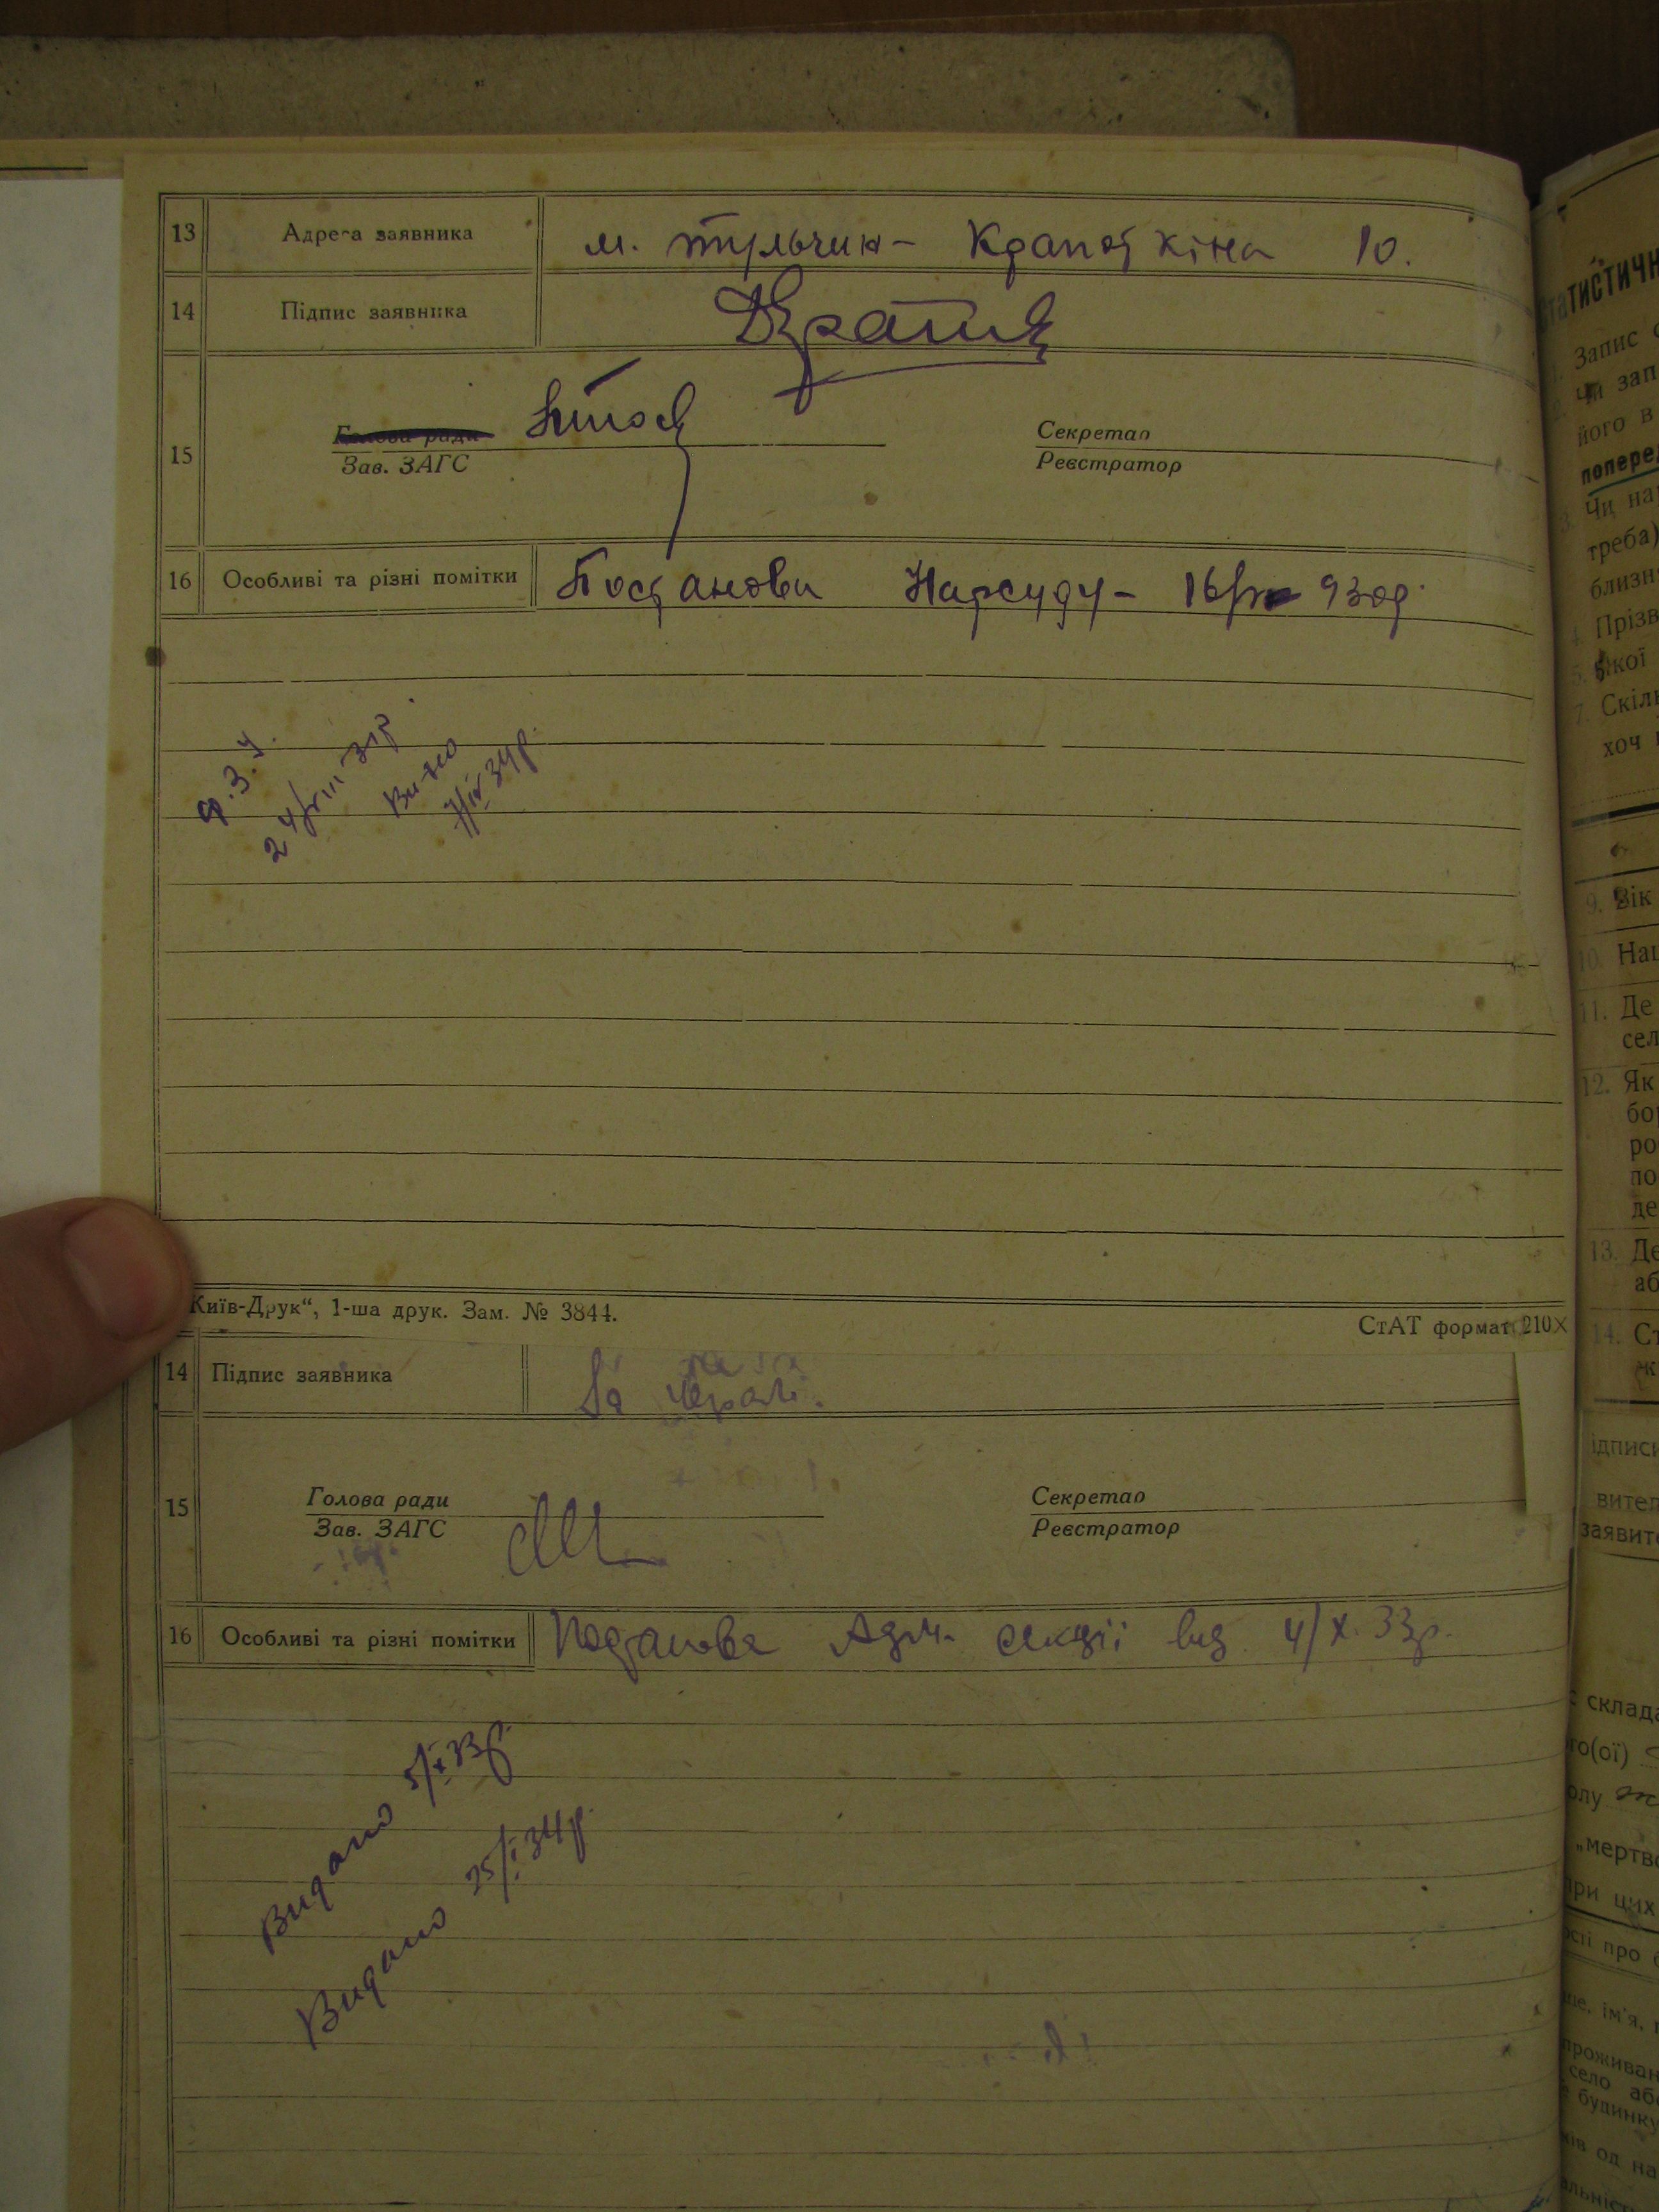 13 Адреса заявника м. тульчин - Крапоткіна 10.
14 Підпис заявника
15 Голова ради Секретар
Зав. ЗАГС Реєстратор
16 Особливі та різні помітки Постанова Нарсуду - 930р.
ф. 3. 4.
24/VIII 31р.
34р.
Київ-Друк“, 1-ша друк. Зам. № 3844.
СтАТ формат 210X
14 Підпис заявника
15 Голова ради Секретар
Зав. ЗАГС Реєстратор
16 Особливі та різні помітки Постанова Адм. секції від 4/X. 33р.
Видано 5/X 33р.
Видано 25/I 34р.
Статистичн
Запис
Чи зап
його в
попере
Чи на
треба)
близн
Прізв
якої
7. Скіль
хоч
9. Вік
10. Нац
11. Де
сел
12. Як
бо
ро
по
де
13. Де
аб
14. Ст
ж
ідписи
вител
заявит
склада
го(ої)
олу
„мертво
при цих
ості про
ще, ім'я,
проживан
село або
будинку
ків од на
альніст